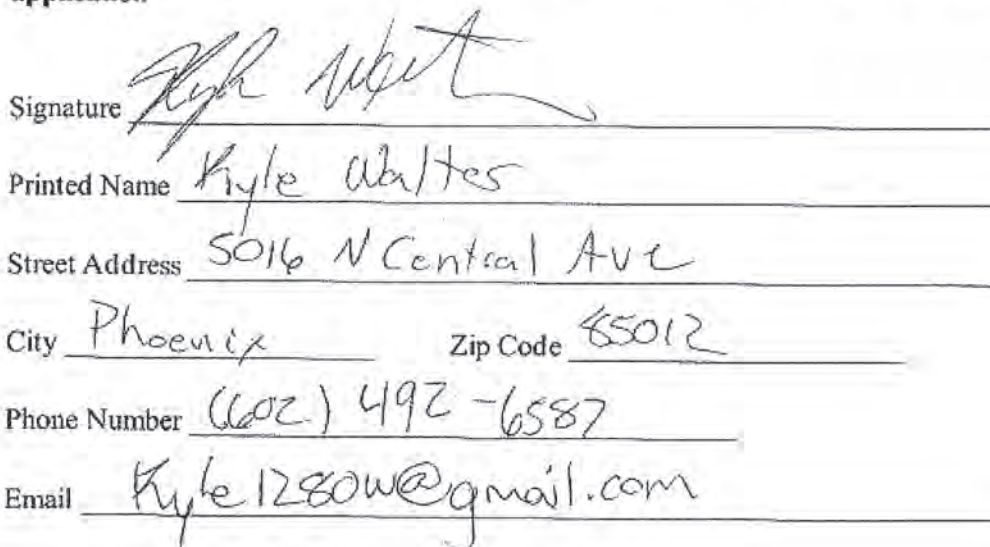 application
Signature
Printed Name Kyle Walter
Street Address 5016 N Central Ave
City Phoenix Zip Code 85012
Phone Number (602) 492-6587
Email Kyle1280w@gmail.com